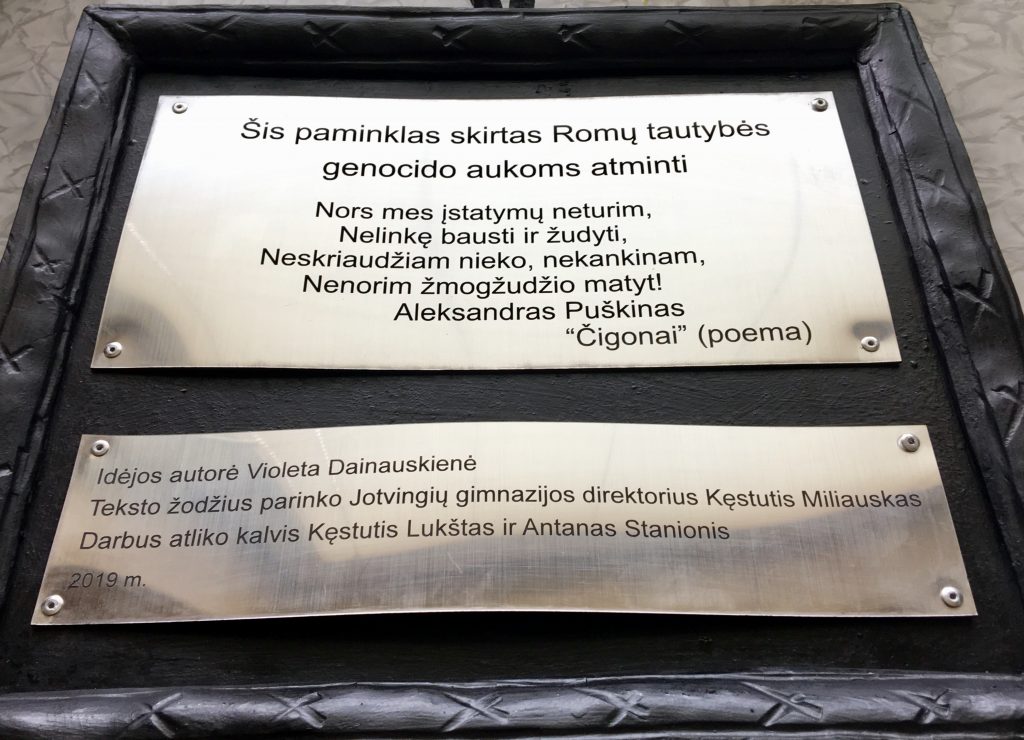 Šis paminklas skirtas Romų tautybės
genocido aukoms atminti
Nors mes įstatymų neturim,
Nelinkę bausti ir žudyti,
Neskriaudžiam nieko, nekankinam,
Nenorim žmogžudžio matyt!
Aleksandras Puškinas
“Čigonai” (poema)
Idėjos autorė Violeta Dainauskienė
Teksto žodžius parinko Jotvingių gimnazijos direktorius Kęstutis Miliauskas
Darbus atliko kalvis Kęstutis Lukštas ir Antanas Stanionis
2019 m.